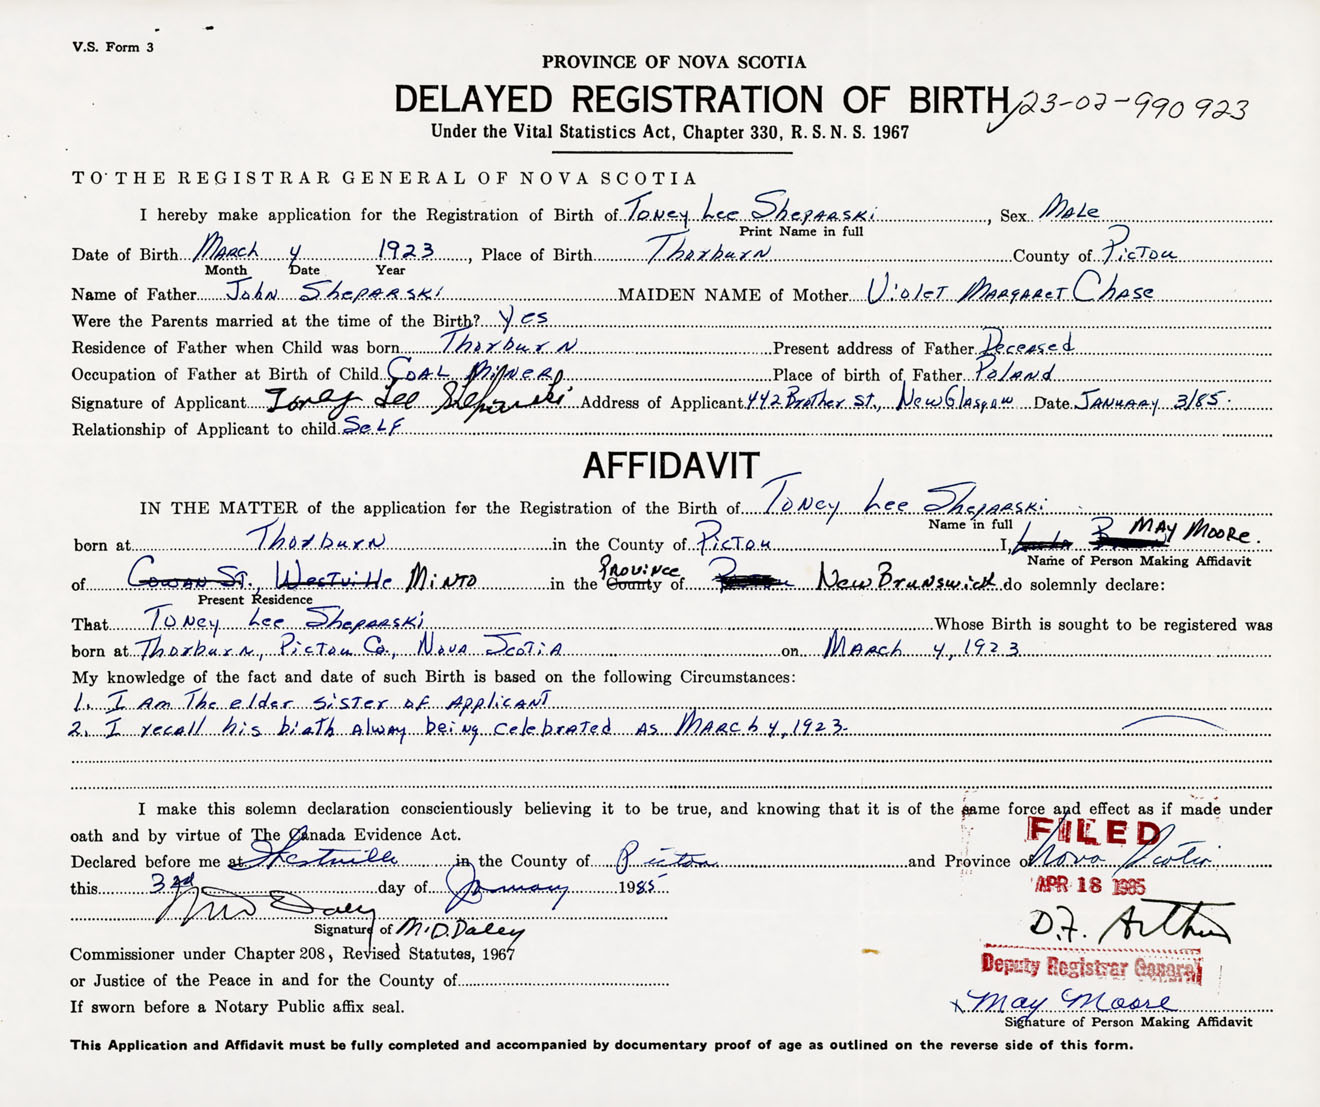 V.S. Form 3
PROVINCE OF NOVA SCOTIA
DELAYED REGISTRATION OF BIRTH 23-02-990923
Under the Vital Statistics Act, Chapter 330, R. S. N. S. 1967
TO THE REGISTRAR GENERAL OF NOVA SCOTIA
I hereby make application for the Registration of Birth of Toney Lee Sheparski, Sex Male
Print Name in full
Date of Birth March 4 1923, Place of Birth Thorburn County of Pictou
Month Date Year
Name of Father John Sheparski MAIDEN NAME of Mother Violet Margaret Chase
Were the Parents married at the time of the Birth? Yes
Residence of Father when Child was born Thorburn Present address of Father Deceased
Occupation of Father at Birth of Child Coal Miner Place of birth of Father Poland
Signature of Applicant Toney Lee Sheparski Address of Applicant 442 Brother St., New Glasgow Date January 3/85.
Relationship of Applicant to child Self
AFFIDAVIT
IN THE MATTER of the application for the Registration of the Birth of Toney Lee Sheparski
Name in full
born at Thorburn in the County of Pictou I, May Moore.
Name of Person Making Affidavit
of Cowan St., Westville Minto in the Province County of New Brunswick do solemnly declare:
Present Residence
That Toney Lee Sheparski Whose Birth is sought to be registered was
born at Thorburn, Pictou Co., Nova Scotia on March 4, 1923
My knowledge of the fact and date of such Birth is based on the following Circumstances:
1. I am the elder sister of applicant
2. I recall his birth alway being celebrated as March 4, 1923.
I make this solemn declaration conscientiously believing it to be true, and knowing that it is of the same force and effect as if made under
oath and by virtue of The Canada Evidence Act.
FILED
Declared before me at Westville in the County of Pictou and Province of Nova Scotia
this 3rd day of January 1985
APR 18 1985
D.F. Arthur
Signature of M.D. Daley
Commissioner under Chapter 208, Revised Statutes, 1967
Deputy Registrar General
or Justice of the Peace in and for the County of
If sworn before a Notary Public affix seal.
x May Moore
Signature of Person Making Affidavit
This Application and Affidavit must be fully completed and accompanied by documentary proof of age as outlined on the reverse side of this form.